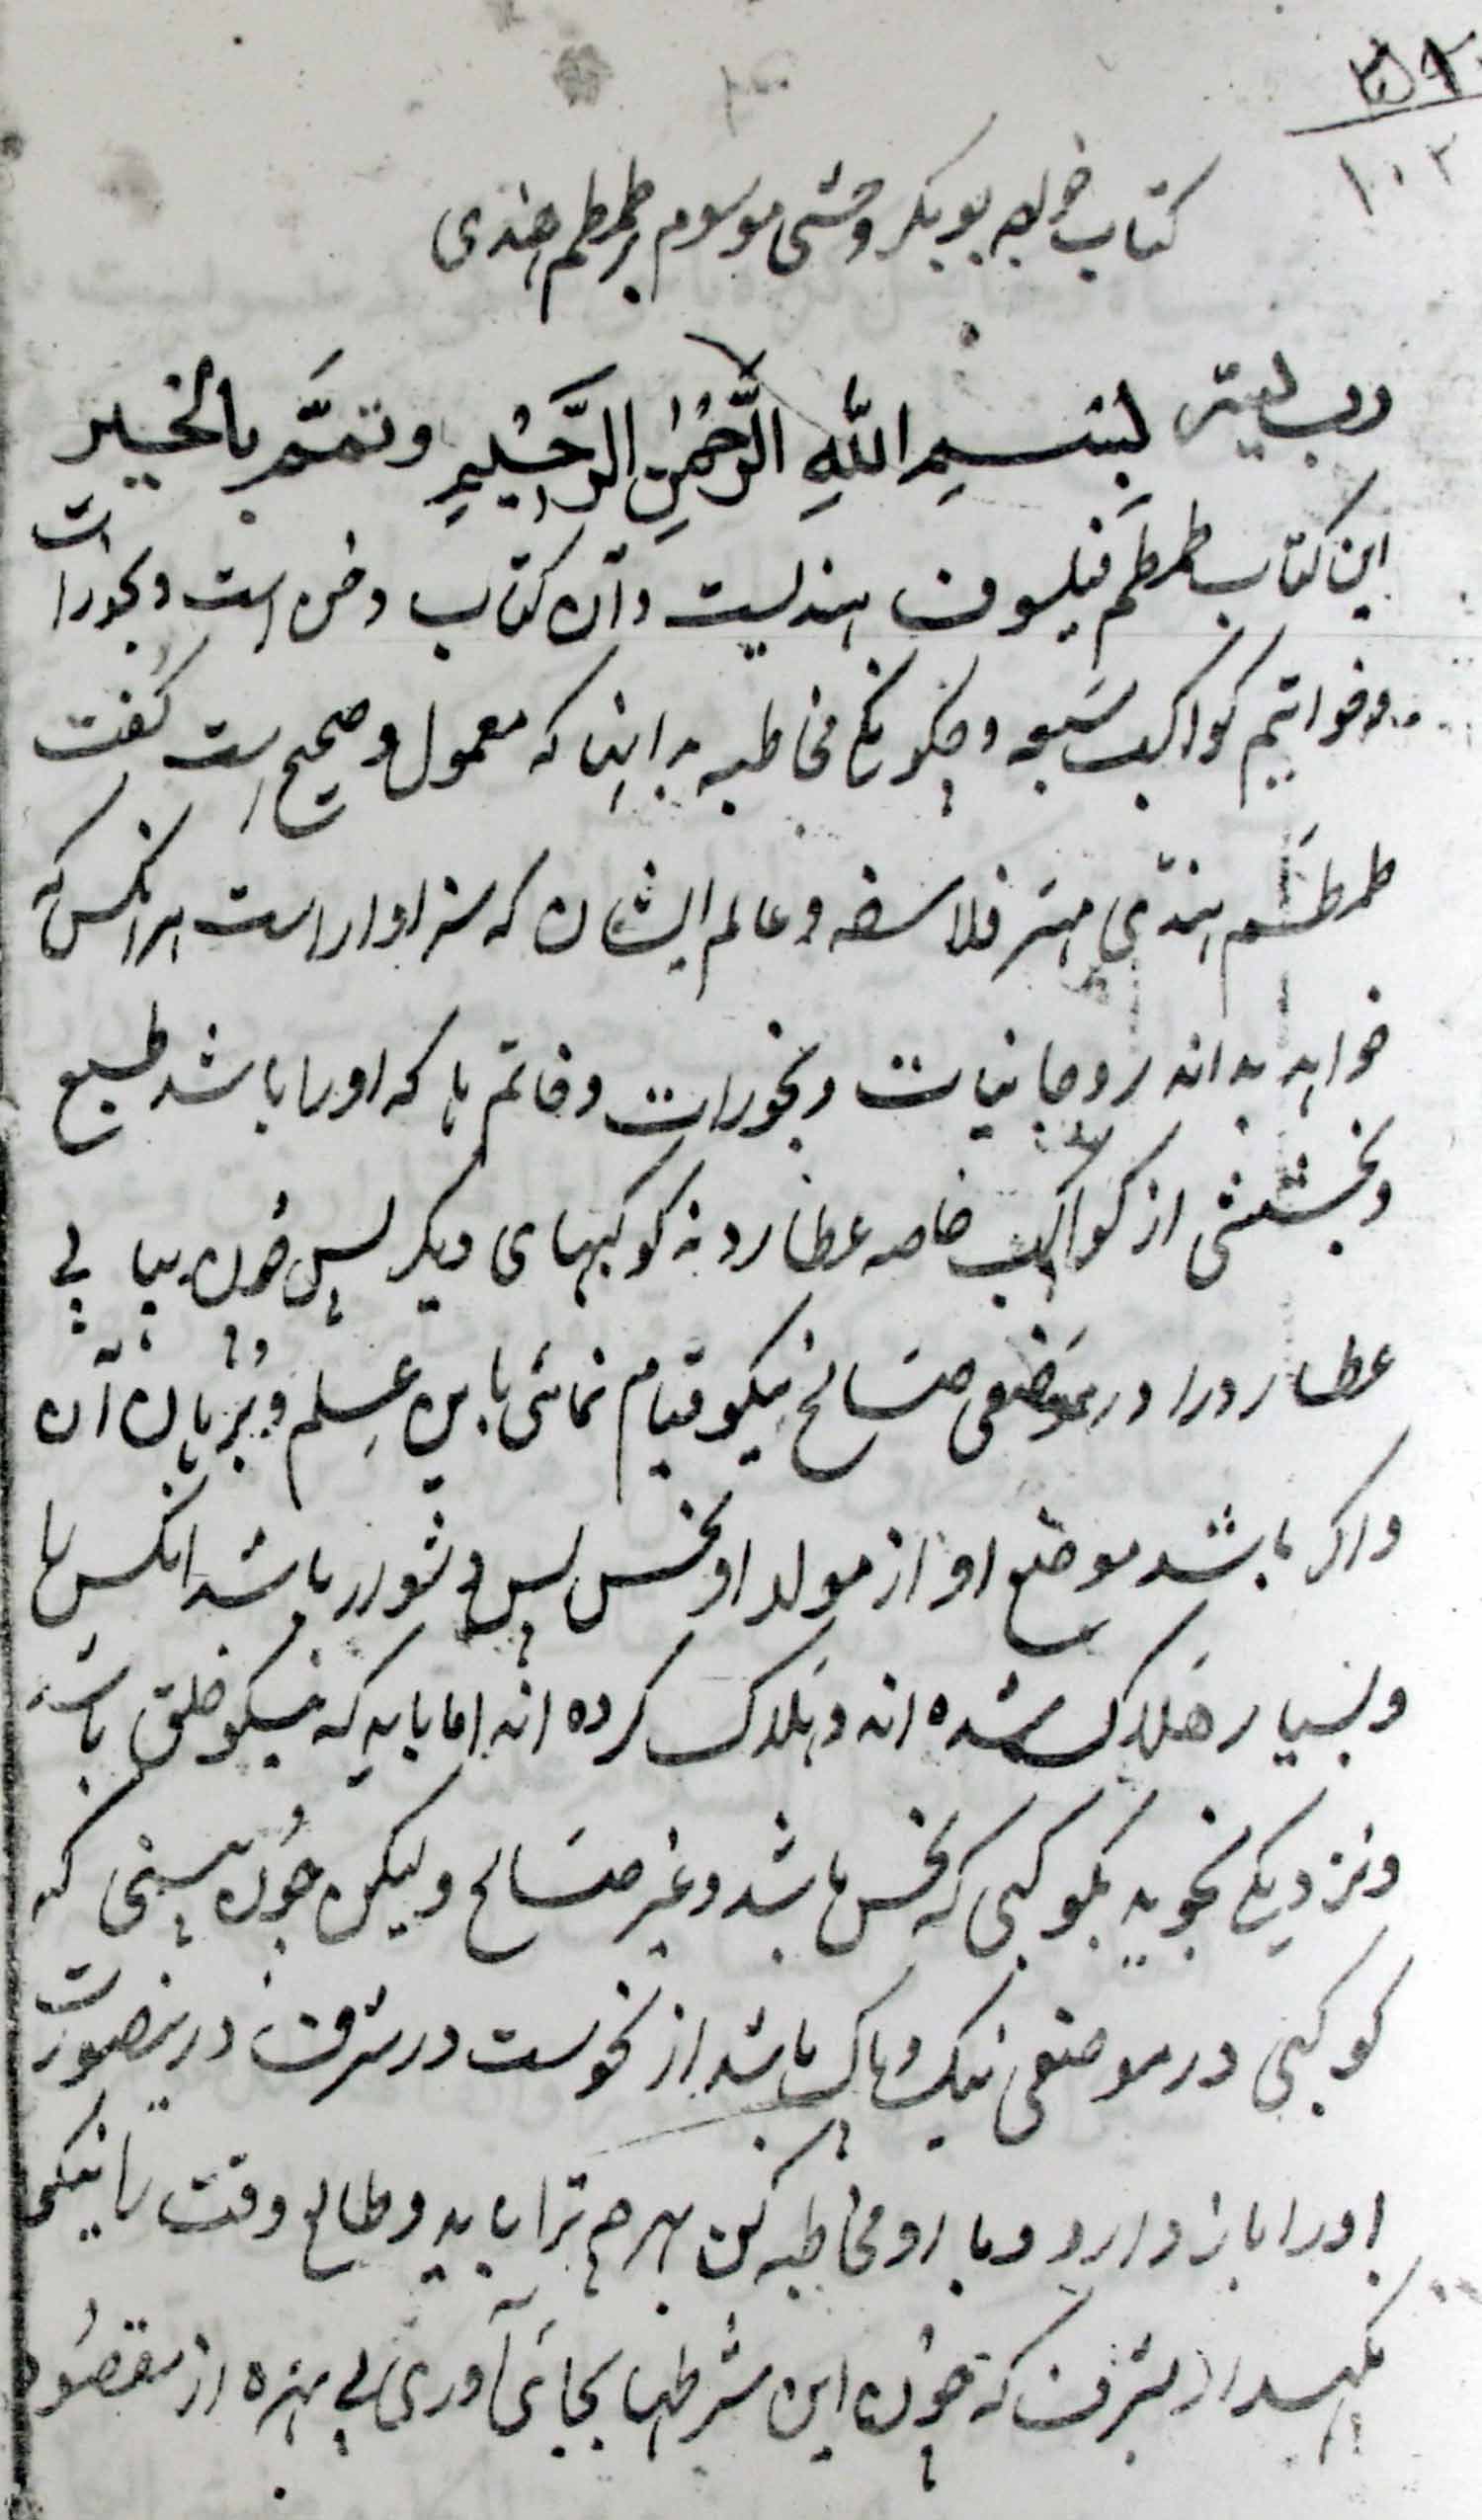 ۱۰۲
کتاب خواجه بوبکر وحشی موسوم بطمطم هندی
رب یسر بسم الله الرحمن الرحیم وتمم بالخیر
این کتاب طمطم فیلسوف هندیست و آن کتاب دخن است و بخورات
وخواتیم کواکب سبعه و چکونکی مخاطبه به اینها که معمول و صحیح است گفت
طمطم هندی مهتر فلاسفه و عالم ایشان که سزاوار است هرانکس که
خواهد بداند روحانیات و بخورات و خاتم ها که او را باشد طبع
و بخششی از کواکب خاصه عطارد نه کوکبهای دیکر پس چون بیابی
عطارد را در موضعی صالح نیکو قیام نمائی باین علم و بزبان آن
واکر باشد موضع او از مولد او نحس پس دشوار باشد انکس را
و بسیار هلاک شده اند و هلاک کرده اند اما باید که نیکو خلق باشد
و نزدیکی نجوید بکوکبی که نحس باشد و غیر صالح ولیکن چون ببینی که
کوکبی در موضعی نیک و پاک باشد از نحوست در شرف درینصورت
او را باز دارد و با او مخاطبه کن بهرچه ترا باید و طالع وقت را نیکی
نکهدار بشرف که چون این شرطها بجای آوری بی بهره از مقصود